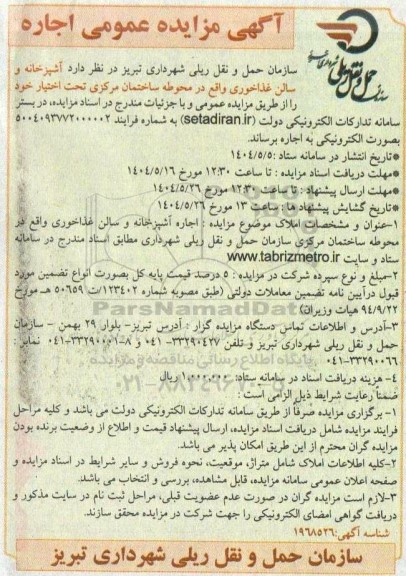 آگهی مزایده عمومی اجاره
سازمان حمل و نقل ریلی شهرداری تبریز در نظر دارد آشپزخانه و
سالن غذاخوری واقع در محوطه ساختمان مرکزی تحت اختیار خود
را از طریق مزایده عمومی و با جزئیات مندرج در اسناد مزایده، در بستر
سامانه تدارکات الکترونیکی دولت (setadiran.ir) به شماره فرایند ۵۰۰۴۰۹۳۷۷۲۰۰۰۰۰۲
بصورت الکترونیکی به اجاره برساند.
*تاریخ انتشار در سامانه ستاد :۱۴۰۴/۵/۵
*مهلت دریافت اسناد مزایده : تا ساعت ۱۲:۳۰ مورخ ۱۴۰۴/۵/۱۶
*مهلت ارسال پیشنهاد : تا ساعت ۱۲:۳۰ مورخ ۱۴۰۴/۵/۲۶
*تاریخ گشایش پیشنهاد ها : ساعت ۱۳ مورخ ۱۴۰۴/۵/۲۶
۱-عنوان و مشخصات املاک موضوع مزایده : اجاره آشپزخانه و سالن غذاخوری واقع در
محوطه ساختمان مرکزی سازمان حمل و نقل ریلی شهرداری مطابق اسناد مندرج در سامانه
ستاد و سایت www.tabrizmetro.ir
۲-مبلغ و نوع سپرده شرکت در مزایده : ۵ درصد قیمت پایه کل بصورت انواع تضمین مورد
قبول درآیین نامه تضمین معاملات دولتی (طبق مصوبه شماره ۱۲۳۴۰۲/ت ۵۰۶۵۹ هـ مورخ
۹۴/۹/۲۲ هیات وزیران)
۳-آدرس و اطلاعات تماس دستگاه مزایده گزار : آدرس تبریز- بلوار ۲۹ بهمن - سازمان
حمل و نقل ریلی شهرداری تبریز و تلفن ۳۳۲۹۰۴۲۷-۰۴۱ و ۸-۳۳۲۹۰۰۰۱-۰۴۱ نمابر :
۰۴۱-۳۳۲۹۰۰۶۶
۴- هزینه دریافت اسناد در سامانه ستاد: ۱.۰۰۰.۰۰۰ ریال
ضمنا رعایت شرایط ذیل الزامی است :
۱- برگزاری مزایده صرفاً از طریق سامانه تدارکات الکترونیکی دولت می باشد و کلیه مراحل
فرایند مزایده شامل دریافت اسناد مزایده، ارسال پیشنهاد قیمت و اطلاع از وضعیت برنده بودن
مزایده گران محترم از این طریق امکان پذیر می باشد.
۲-کلیه اطلاعات املاک شامل متراژ، موقعیت، نحوه فروش و سایر شرایط در اسناد مزایده و
صفحه اعلان عمومی سامانه مزایده، قابل مشاهده، بررسی و انتخاب می باشد.
۳-لازم است مزایده گران در صورت عدم عضویت قبلی، مراحل ثبت نام در سایت مذکور و
دریافت گواهی امضای الکترونیکی را جهت شرکت در مزایده محقق سازند.
شناسه آگهی:۱۹۶۸۵۲۶
سازمان حمل و نقل ریلی شهرداری تبریز
ParsNamadData
پایگاه اطلاع رسانی مناقصه و مزایده